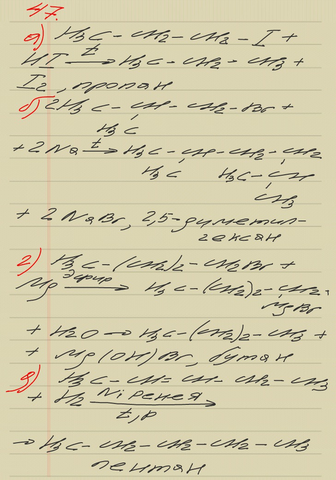 47.
а) H3C - CH2 - CH2 - I +
HI t→ H3C - CH2 - CH3 +
I2, пропан
б) 2H3C - CH - CH2 - Br +
H3C
+ 2Na t→ H3C - CH - CH2 - CH2
H3C H3C - CH
CH3
+ 2NaBr, 2,5-диметил-
гексан
г) H3C - (CH2)2 - CH2Br +
Mg эфир→ H3C - (CH2)2 - CH2 -
MgBr
+ H2O → H3C - (CH2)2 - CH3 +
+ Mg(OH)Br, бутан
д) H3C - CH = CH - CH2 - CH3
+ H2 Ni Ренея→
t, p
→ H3C - CH2 - CH2 - CH2 - CH3
пентан